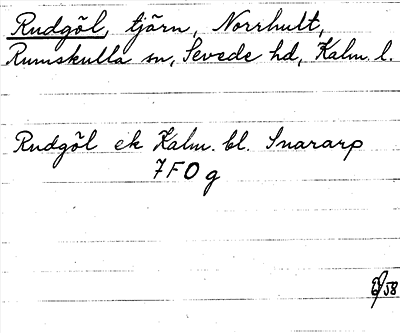 Rudgöl, tjärn, Norrhult,
Rumskulla sn, Sevede hd, Kalm. l.
Rudgöl ek Kalm. bl. Snararp
7F0g
58